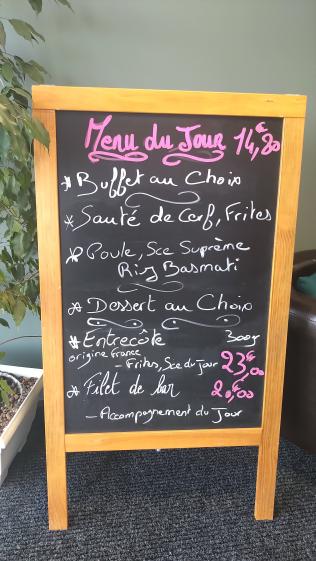 Menu du Jour 14,80€
* Buffet au Choix
* Sauté de Cerf, Frites
* Poule, Sce Suprême
Riz Basmati
* Dessert au Choix
* Entrecôte 300g
origine France
- Frites, Sce du jour 23,00€
* Filet de bar 20,00€
- Accompagnement du Jour